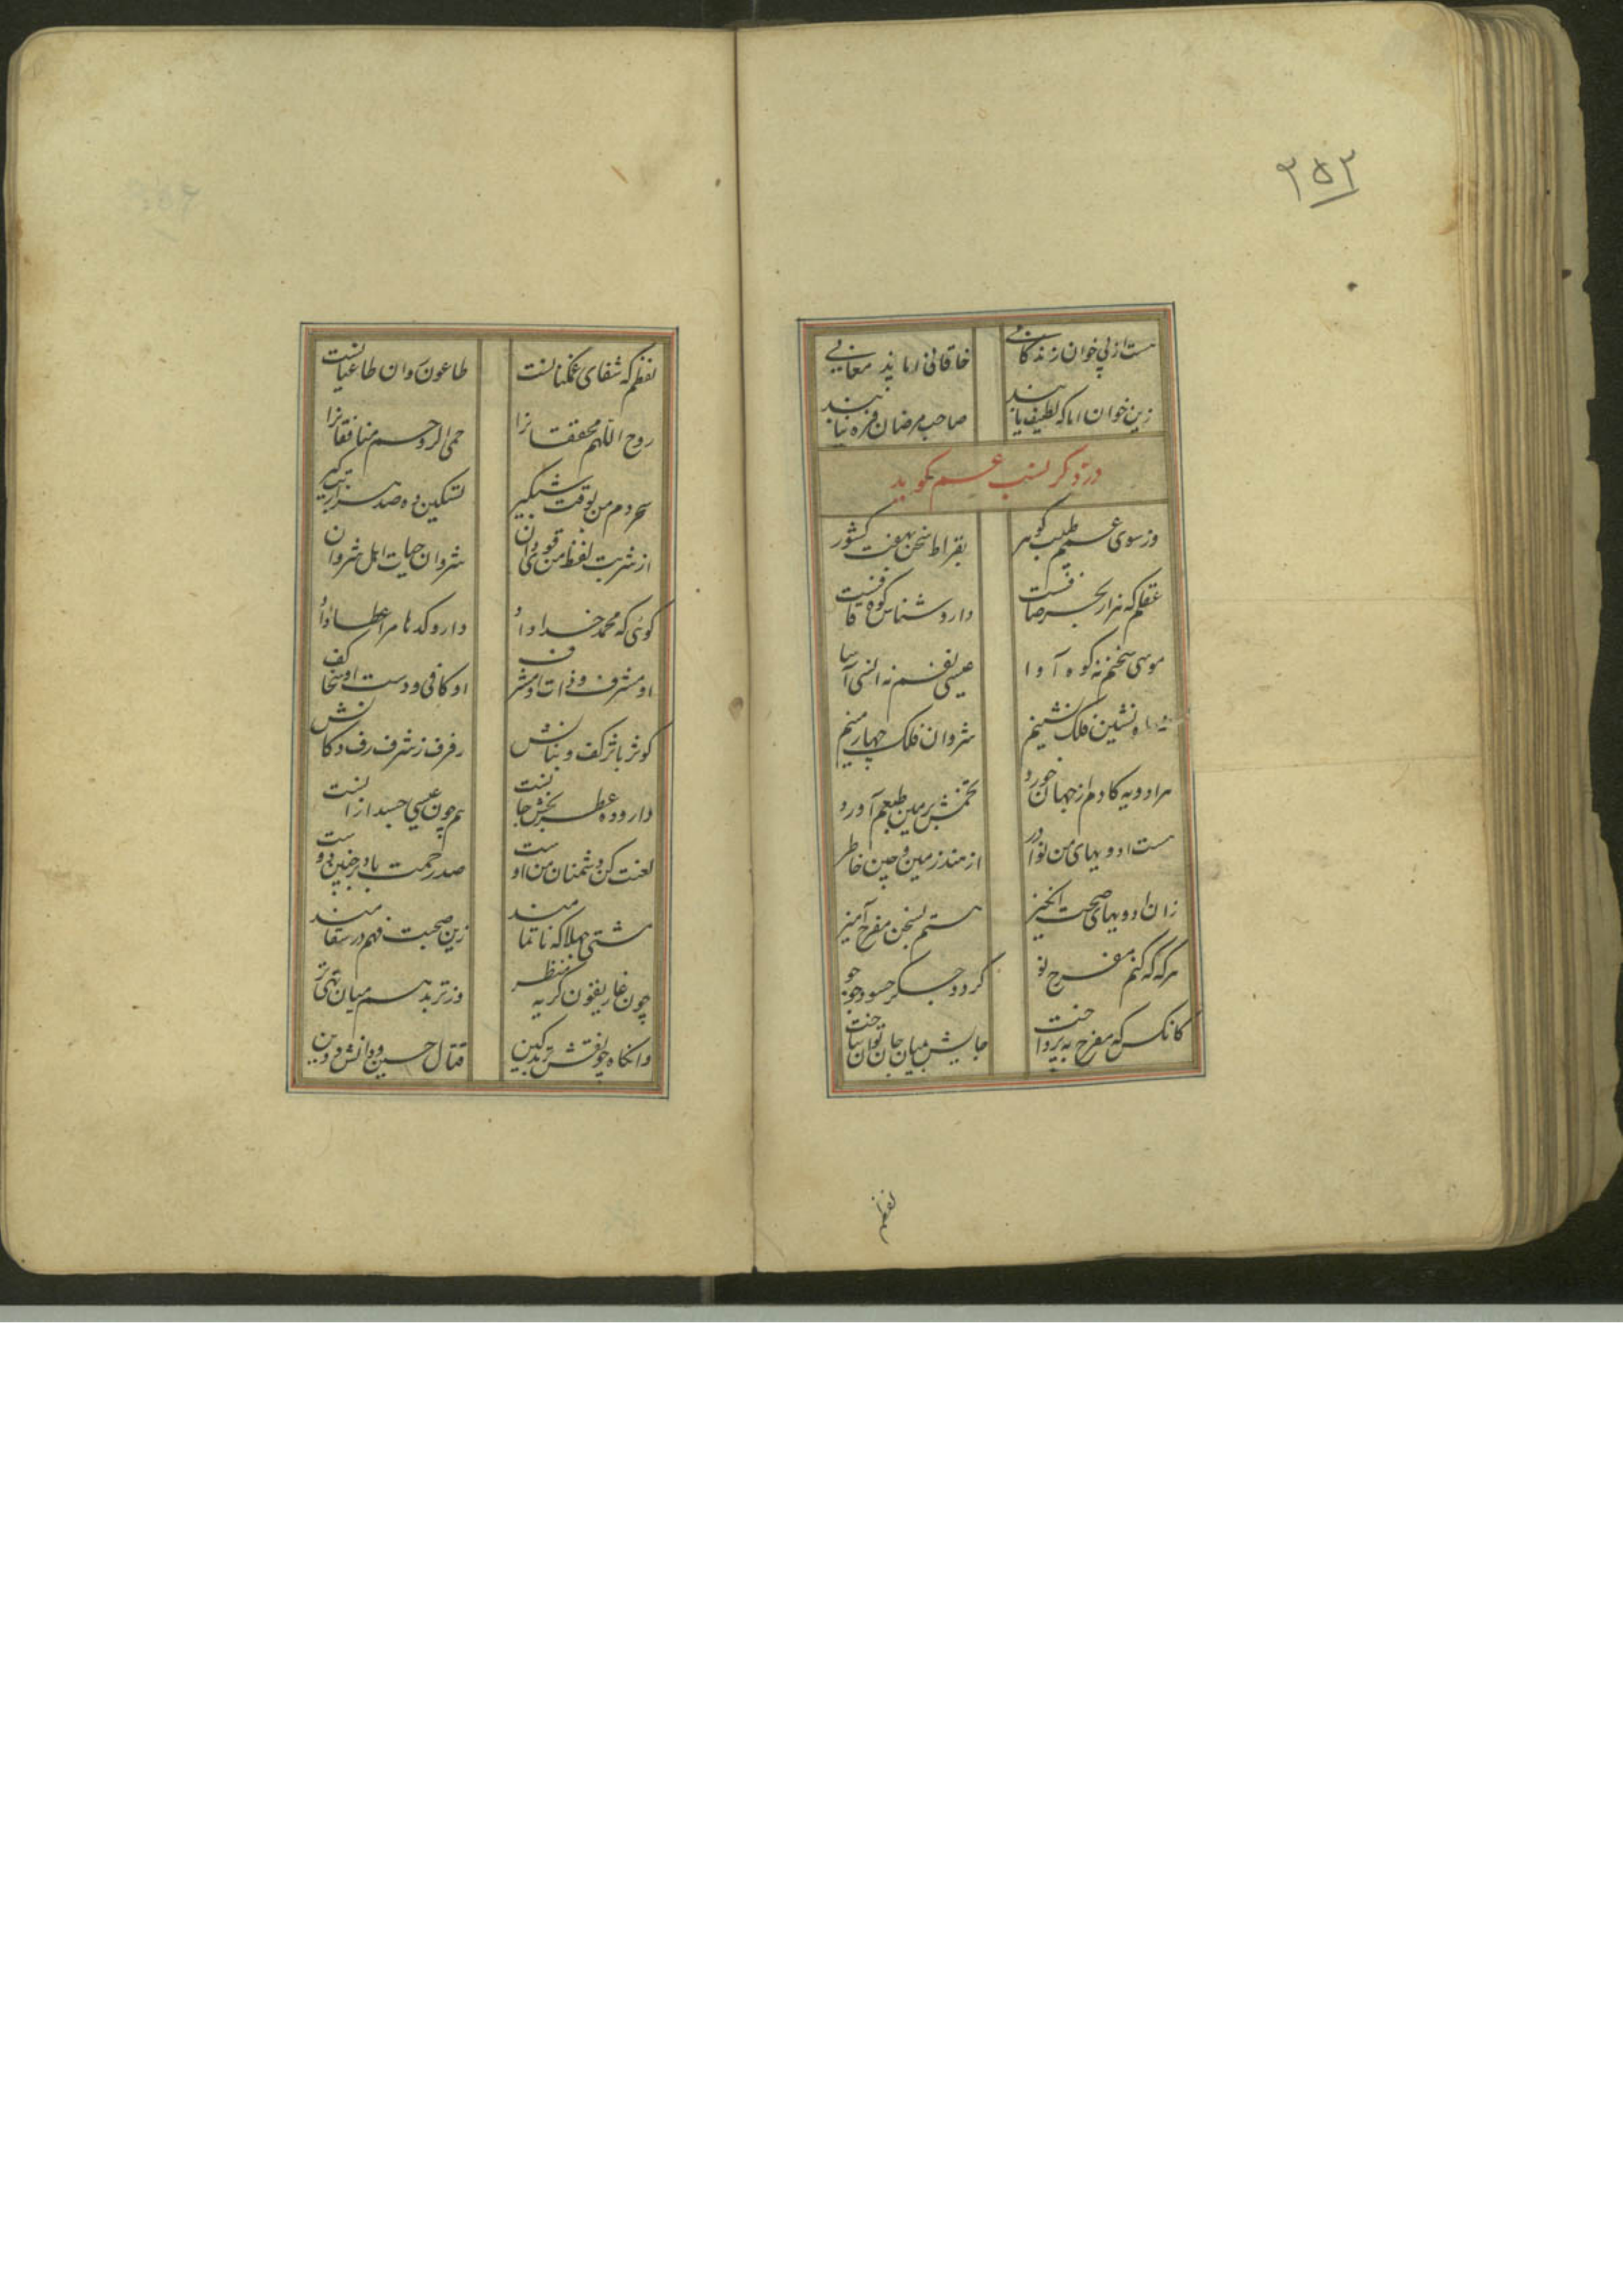 ۲۵۲
هست از پی خوان زندگانی
خاقانی را مایده معانی
زین خوان اما که لطیف یابند
صاحب مرضان مزه نیابند
در ذکر نسب عم گوید
وز سوی عمم طبیب گوهر
بقراط سخن بهفت کشور
عقلم که هزار بحر صافست
دارو شناس کوه قافست
موسی سخنم نه کوه آوا
عیسی نفسم نه انسی آسا
نشین فلک نشینم
شروان فلک چهارمینم
هر ادویه کادم از جهان خورد
تخمش بزمین طبعم آورد
هست ادویهای من نوادر
از هند زمین و چین خاطر
زان ادویهای صحت انگیز
هستم بسخن مفرح آمیز
هر گه که کنم مفرح نو
گردد جگر حسود جو جو
کانکس که مفرح به پرداخت
جایش میان جان توان ساخت
لفظم
لفظم که شفای غمگنانست
طاعون روان طاغیانست
روح اللهم محققان را
حمی الروحم منافقان را
سحر دم من بوقت شبگیر
تسکین ده صد هزار تبگیر
از شربت لفظ من قوی دان
شروان حیات اهل شروان
گوئی که محمد خدا داد
دارو کدها مرا عطا داد
او مشرف و ذات او مشرف
او کافی و دست او سخا کف
کوثر باثر کف و بنانش
رفرف ز شرف رف دکانش
داروده عطر بخش جانست
هم چون عیسی جسد از انست
لعنت کن دشمنان من اوست
صد رحمت باد بر چنین دوست
مشتی جهلا که ناتمامند
زین صحبت فهم در سقامند
چون غاریقون کریه منظر
وز تربد هم میان تهی تر
وانگاه چو نقش تربد کین
قتال حسین و دانش و دین